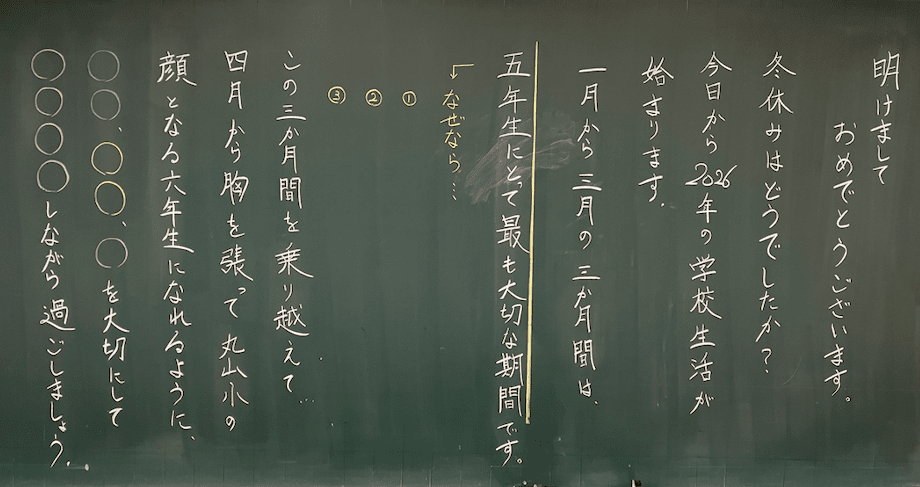 明けまして
おめでとうございます。
冬休みはどうでしたか?
今日から2026年の学校生活が
始まります。
一月から三月の三か月間は、
五年生にとって最も大切な期間です。
なぜなら…
①
②
③
この三か月間を乗り越えて…
四月から胸を張って丸山小の
顔となる六年生になれるように、
○○、○○、○を大切にして
○○○○しながら過ごしましょう。